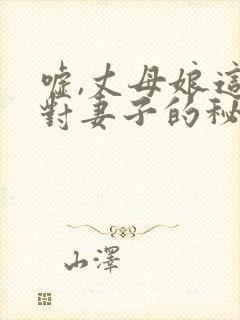 噓,丈母娘這
對妻子的秘
山澤